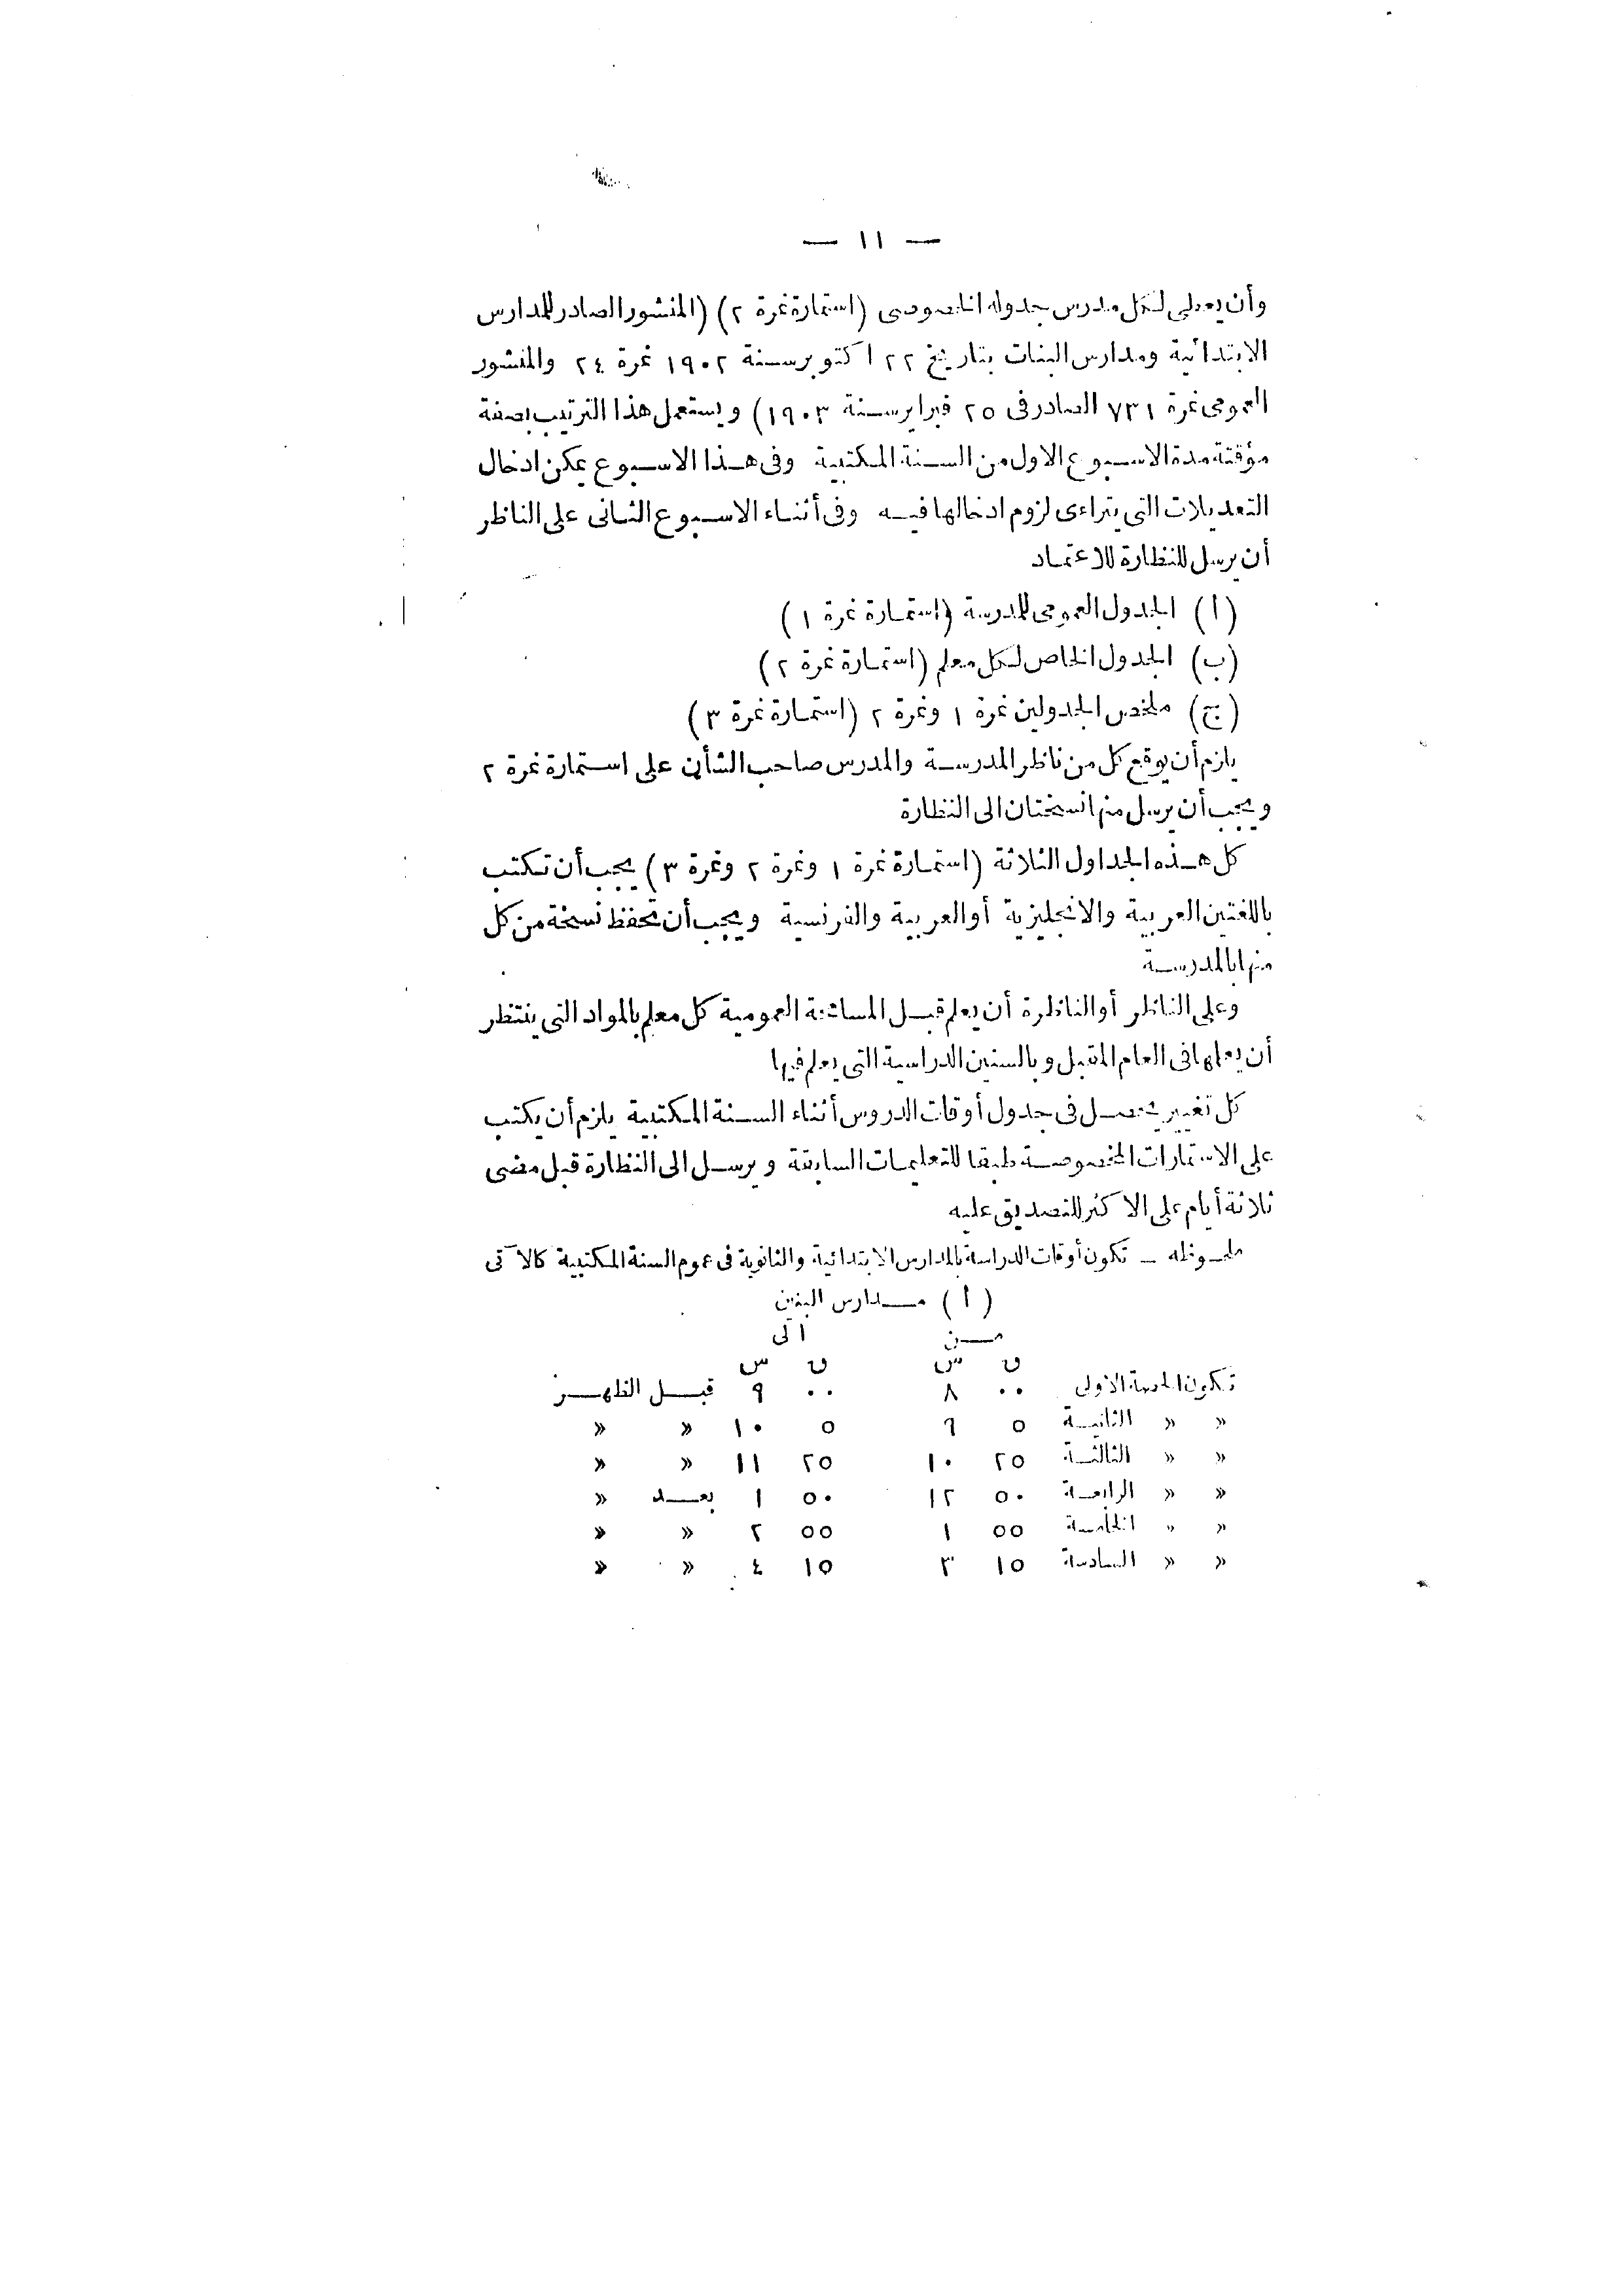 — ١١ —
وأن يعطى لكل مدرس جدوله الخصوصى (استمارة نمرة ٢) (المنشور الصادر للمدارس
الابتدائية ومدارس البنات بتاريخ ٢٢ اكتوبر سنة ١٩٠٢ نمرة ٢٤ والمنشور
العمومى نمرة ٧٣١ الصادر فى ٢٥ فبراير سنة ١٩٠٣) ويستعمل هذا الترتيب بصفة
مؤقتة مدة الاسبوع الاول من السنة المكتبية وفى هذا الاسبوع يمكن ادخال
التعديلات التى يتراءى لزوم ادخالها فيه وفى أثناء الاسبوع الثانى على الناظر
أن يرسل للنظارة للاعتماد
(ا) الجدول العمومى للمدرسة (استمارة نمرة ١)
(ب) الجدول الخاص لكل معلم (استمارة نمرة ٢)
(ج) ملخص الجدولين نمرة ١ ونمرة ٢ (استمارة نمرة ٣)
يلزم أن يوقع كل من ناظر المدرسة والمدرس صاحب الشأن على استمارة نمرة ٢
ويجب أن يرسل منها نسختان الى النظارة
كل هذه الجداول الثلاثة (استمارة نمرة ١ ونمرة ٢ ونمرة ٣) يجب أن تكتب
باللغتين العربية والانجليزية أو العربية والفرنسية ويجب أن تحفظ نسخة من كل
منها بالمدرسة
وعلى الناظر أو الناظرة أن يعلم قبل المسامحة العمومية كل معلم بالمواد التى ينتظر
أن يعلمها فى العام المقبل وبالسنين الدراسية التى يعلم فيها
كل تغيير يحصل فى جدول أوقات الدروس أثناء السنة المكتبية يلزم أن يكتب
على الاستمارات المخصوصة طبقا للتعليمات السابقة ويرسل الى النظارة قبل مضى
ثلاثة أيام على الاكثر للتصديق عليه
ملحوظه — تكون أوقات الدراسة بالمدارس الابتدائية والثانوية فى عموم السنة المكتبية كالآتى
(ا) مدارس البنين
من الى
ق س ق س
تكون الحصة الاولى ٠٠ ٨ ٠٠ ٩ قبل الظهر
» » الثانية ٥ ٩ ٥ ١٠ » »
» » الثالثة ٢٥ ١٠ ٢٥ ١١ » »
» » الرابعة ٥٠ ١٢ ٥٠ ١ بعد »
» » الخامسة ٥٥ ١ ٥٥ ٢ » »
» » السادسة ١٥ ٣ ١٥ ٤ » »